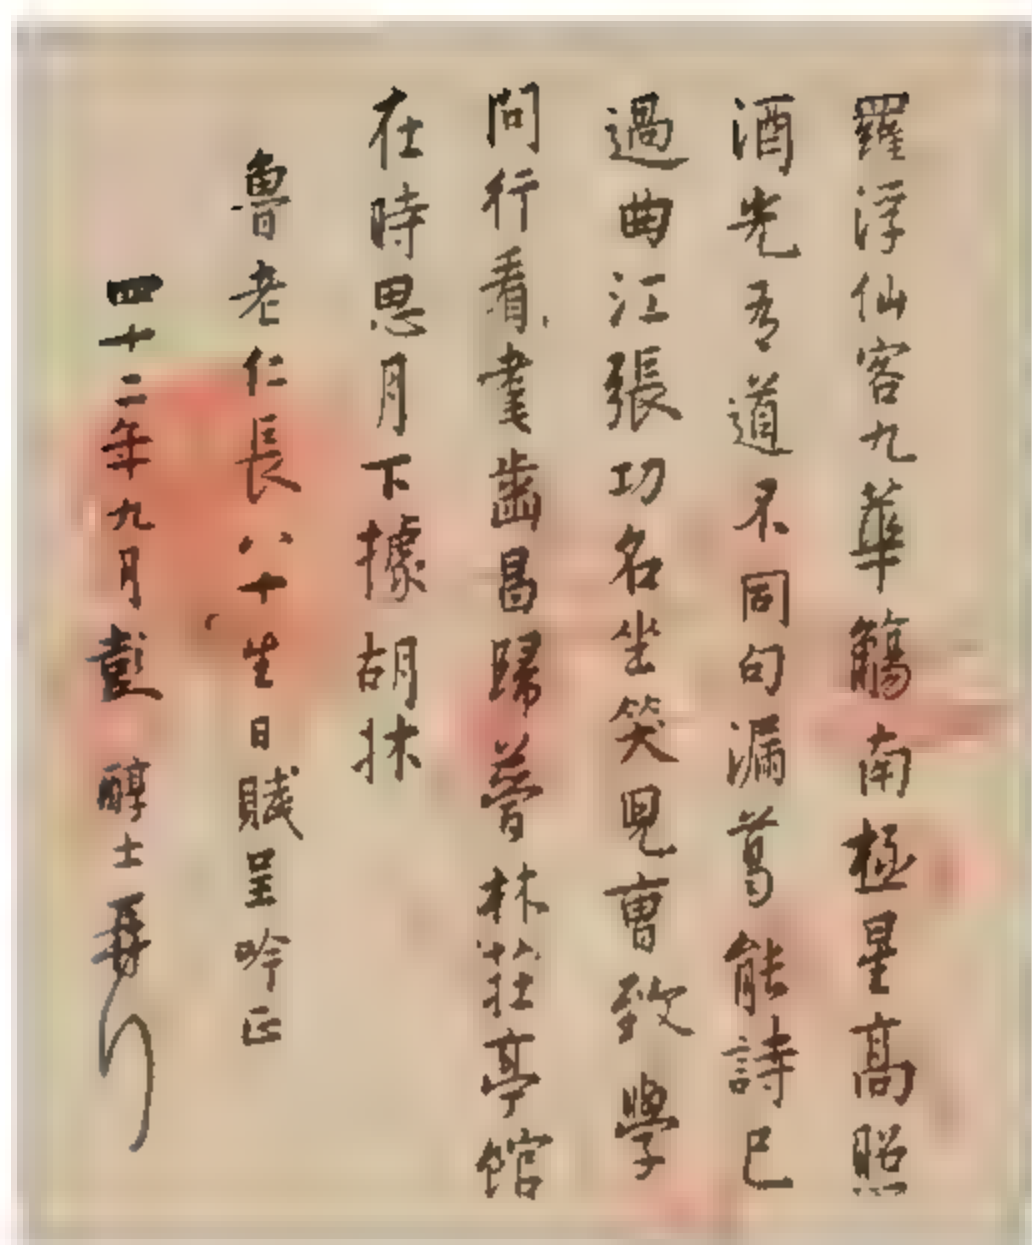 羅浮仙客九華觴南極星高照
酒光吾道不同句漏葛能詩已
過曲江張功名坐笑見曹致學
問行看耄齒昌歸夢林莊亭館
在時思月下據胡牀
魯老仁長八十生日賤呈吟正
四十二年九月彭醇士拜